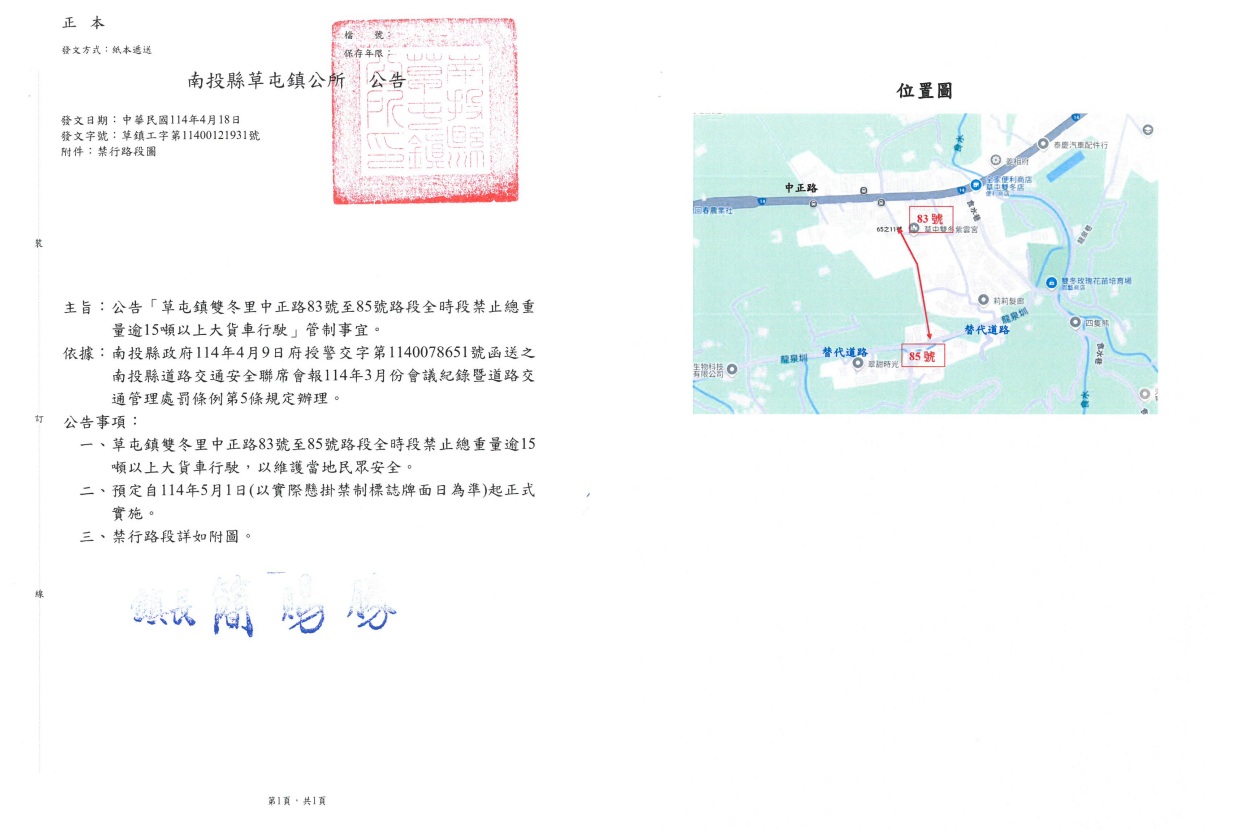 正本
檔號：
保存年限：
發文方式：紙本遞送
南投縣草屯鎮公所 公告
南投縣草屯鎮公所印
發文日期：中華民國114年4月18日
發文字號：草鎮工字第11400121931號
附件：禁行路段圖
主旨：公告「草屯鎮雙冬里中正路83號至85號路段全時段禁止總重
量逾15噸以上大貨車行駛」管制事宜。
依據：南投縣政府114年4月9日府授警交字第1140078651號函送之
南投縣道路交通安全聯席會報114年3月份會議紀錄暨道路交
通管理處罰條例第5條規定辦理。
公告事項：
一、草屯鎮雙冬里中正路83號至85號路段全時段禁止總重量逾15
噸以上大貨車行駛，以維護當地民眾安全。
二、預定自114年5月1日(以實際懸掛禁制標誌牌面日為準)起正式
實施。
三、禁行路段詳如附圖。
鎮長 簡賜勝
裝
訂
線
第1頁，共1頁
位置圖
14
泰慶汽車配件行
全家便利商店
草屯雙冬店
便利商店
14
中正路
14
回春農業社
食水巷
83號
65之11號
草屯雙冬紫雲宮
龍泉巷
雙冬玫瑰花苗培育場
園藝商店
莉莉髮廊
龍泉圳
四隻熊
替代道路
食水巷
85號
替代道路
龍泉圳
翠甜時光
生物科技
有限公司